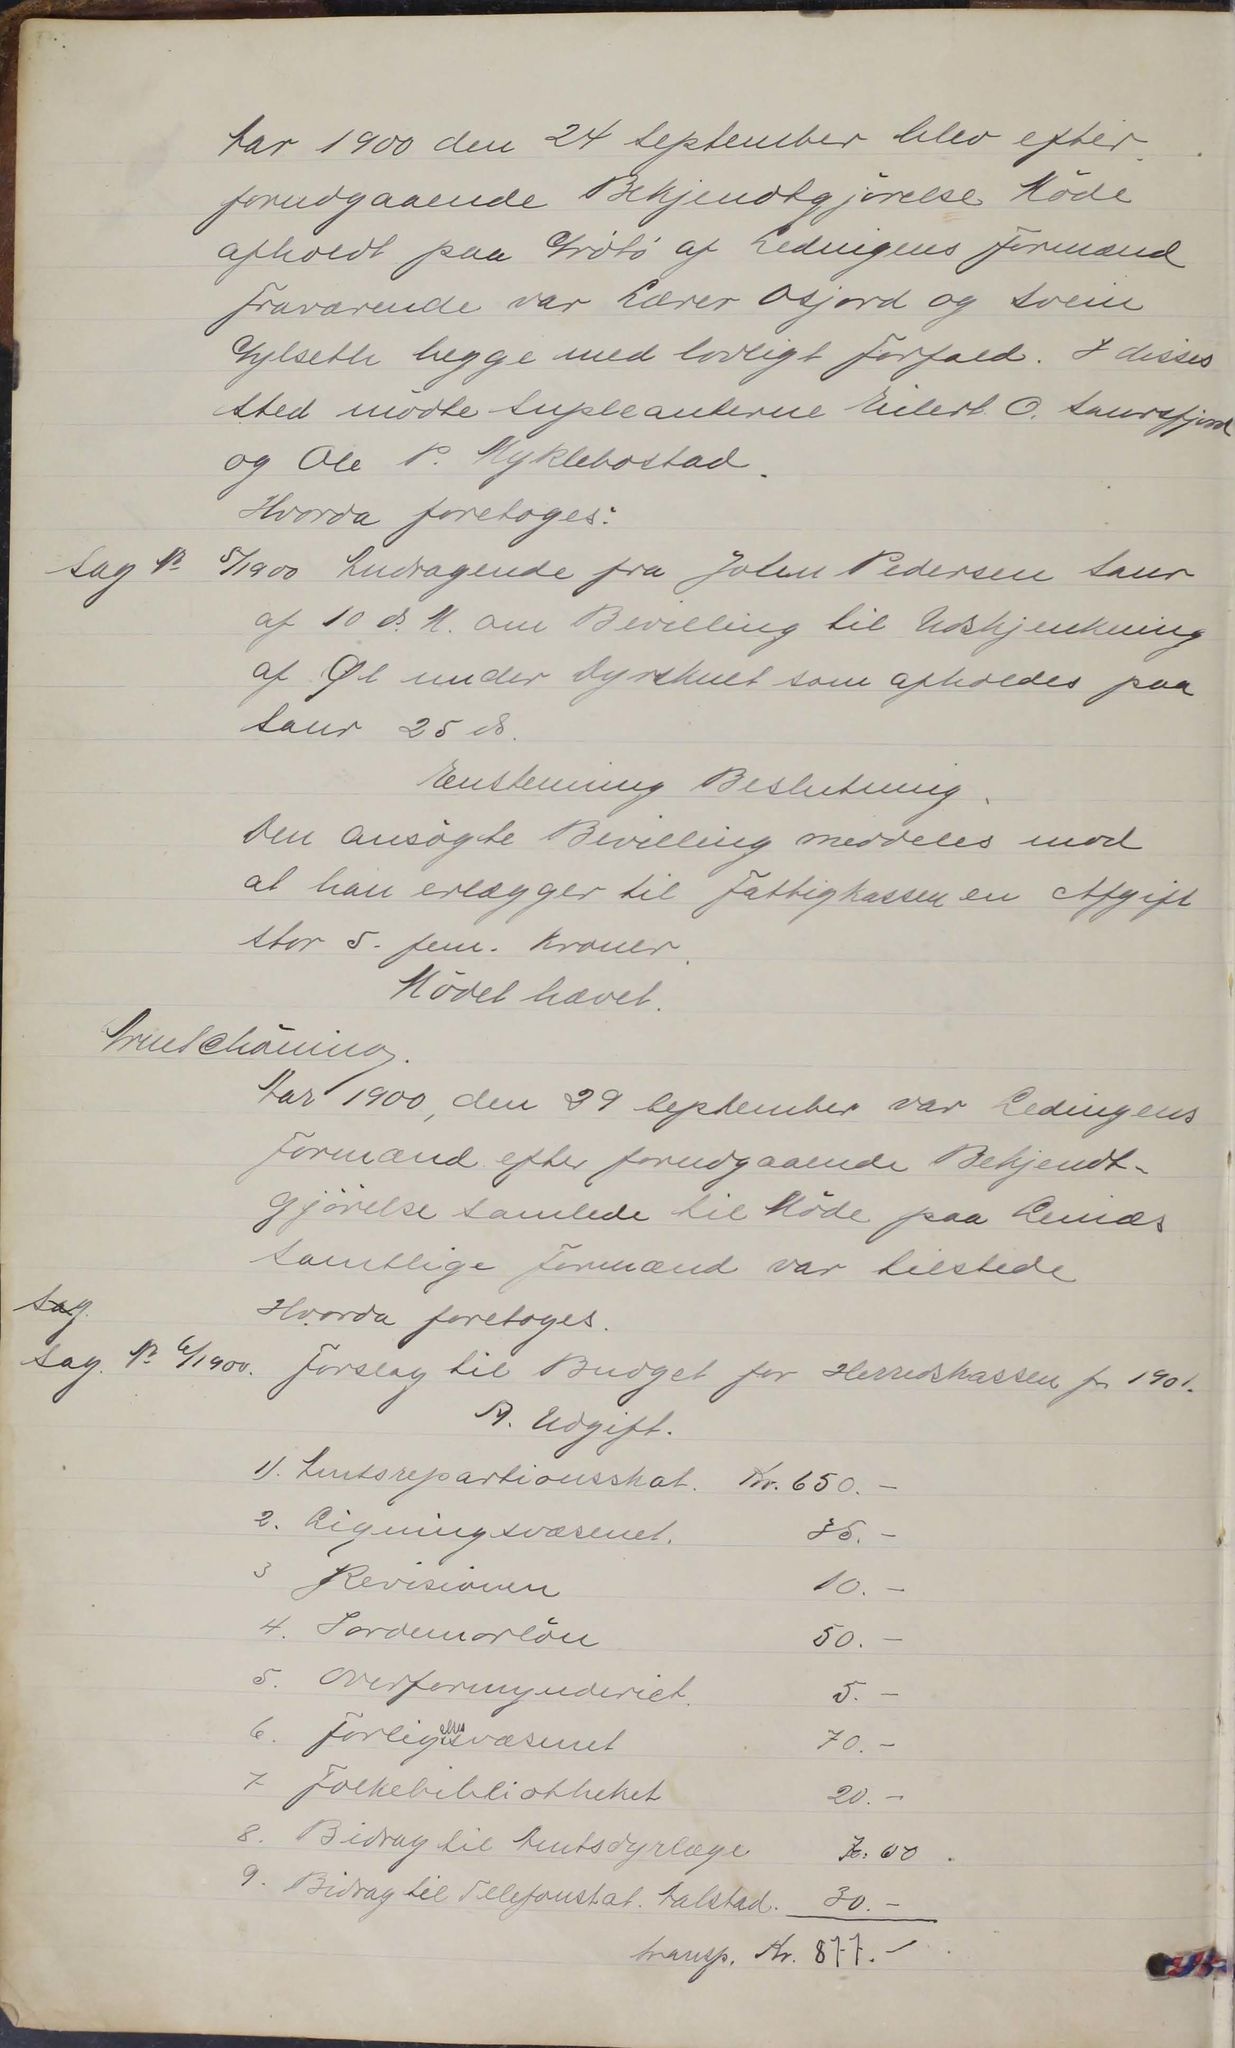 Aar 1900 den 24 September blev efter
forudgaaende Bekjendtgjörelse Möde
afholdt paa Grötö af Ledingens Formænd
Fraværende var Lærer Osjord og Svein
Gylseth begge med lovligt Forfald. I disses
Sted mödte Supleanterne Eilert O. Saursfjord
og Ole P. Myklebostad.
Hvorda foretoges:
Sag No 5/1900 Andragende fra Johan Pedersen Saur
af 10 ds. M. om Bevilling til Udskjenkning
af Øl under Dyrskuet som afholdes paa
Saur 25 ds.
Enstemmig Beslutning.
Den ansögte Bevilling meddeles mod
at han erlægger til Fattigkassen en Afgift
stor 5. fem. Kroner.
Mödet hævet.
Arnt Schöning.
Aar 1900, den 29 September var Ledingens
Formænd efter forudgaaende Bekjendt-
gjörelse samlede til Möde paa Leinæs
Samtlige Formænd var tilstede
Sag. Hvorda foretoges.
Sag. No 6/1900. Forslag til Budget for Herredskassen fr 1901.
A. Udgift.
1). Amtsrepartionsskat. Kr. 650.-
2. Ligningsvæsenet. 35.-
3 Revisionen 10.-
4. Jordemorlön 50.-
5. Overformynderiet. 5.-
6. Forligelsesvæsenet 70.-
7 Folkebibliotheket 20.-
8. Bidrag til Amtsdyrlæge 7.00.
9. Bidrag til Telefonstat. Aalstad. 30.-
transp. Kr. 877.-